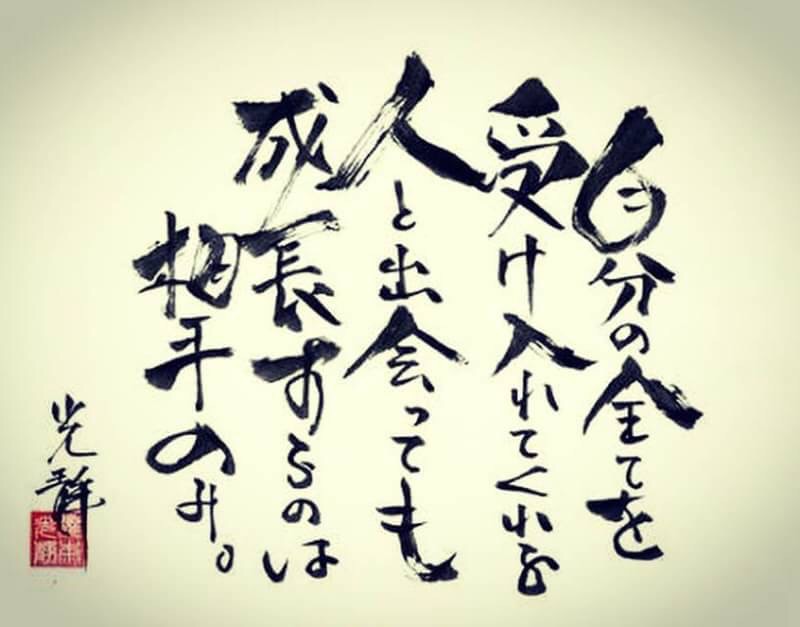 自分の全てを
受け入れてくれる
人と出会っても
成長するのは
相手のみ。
光静